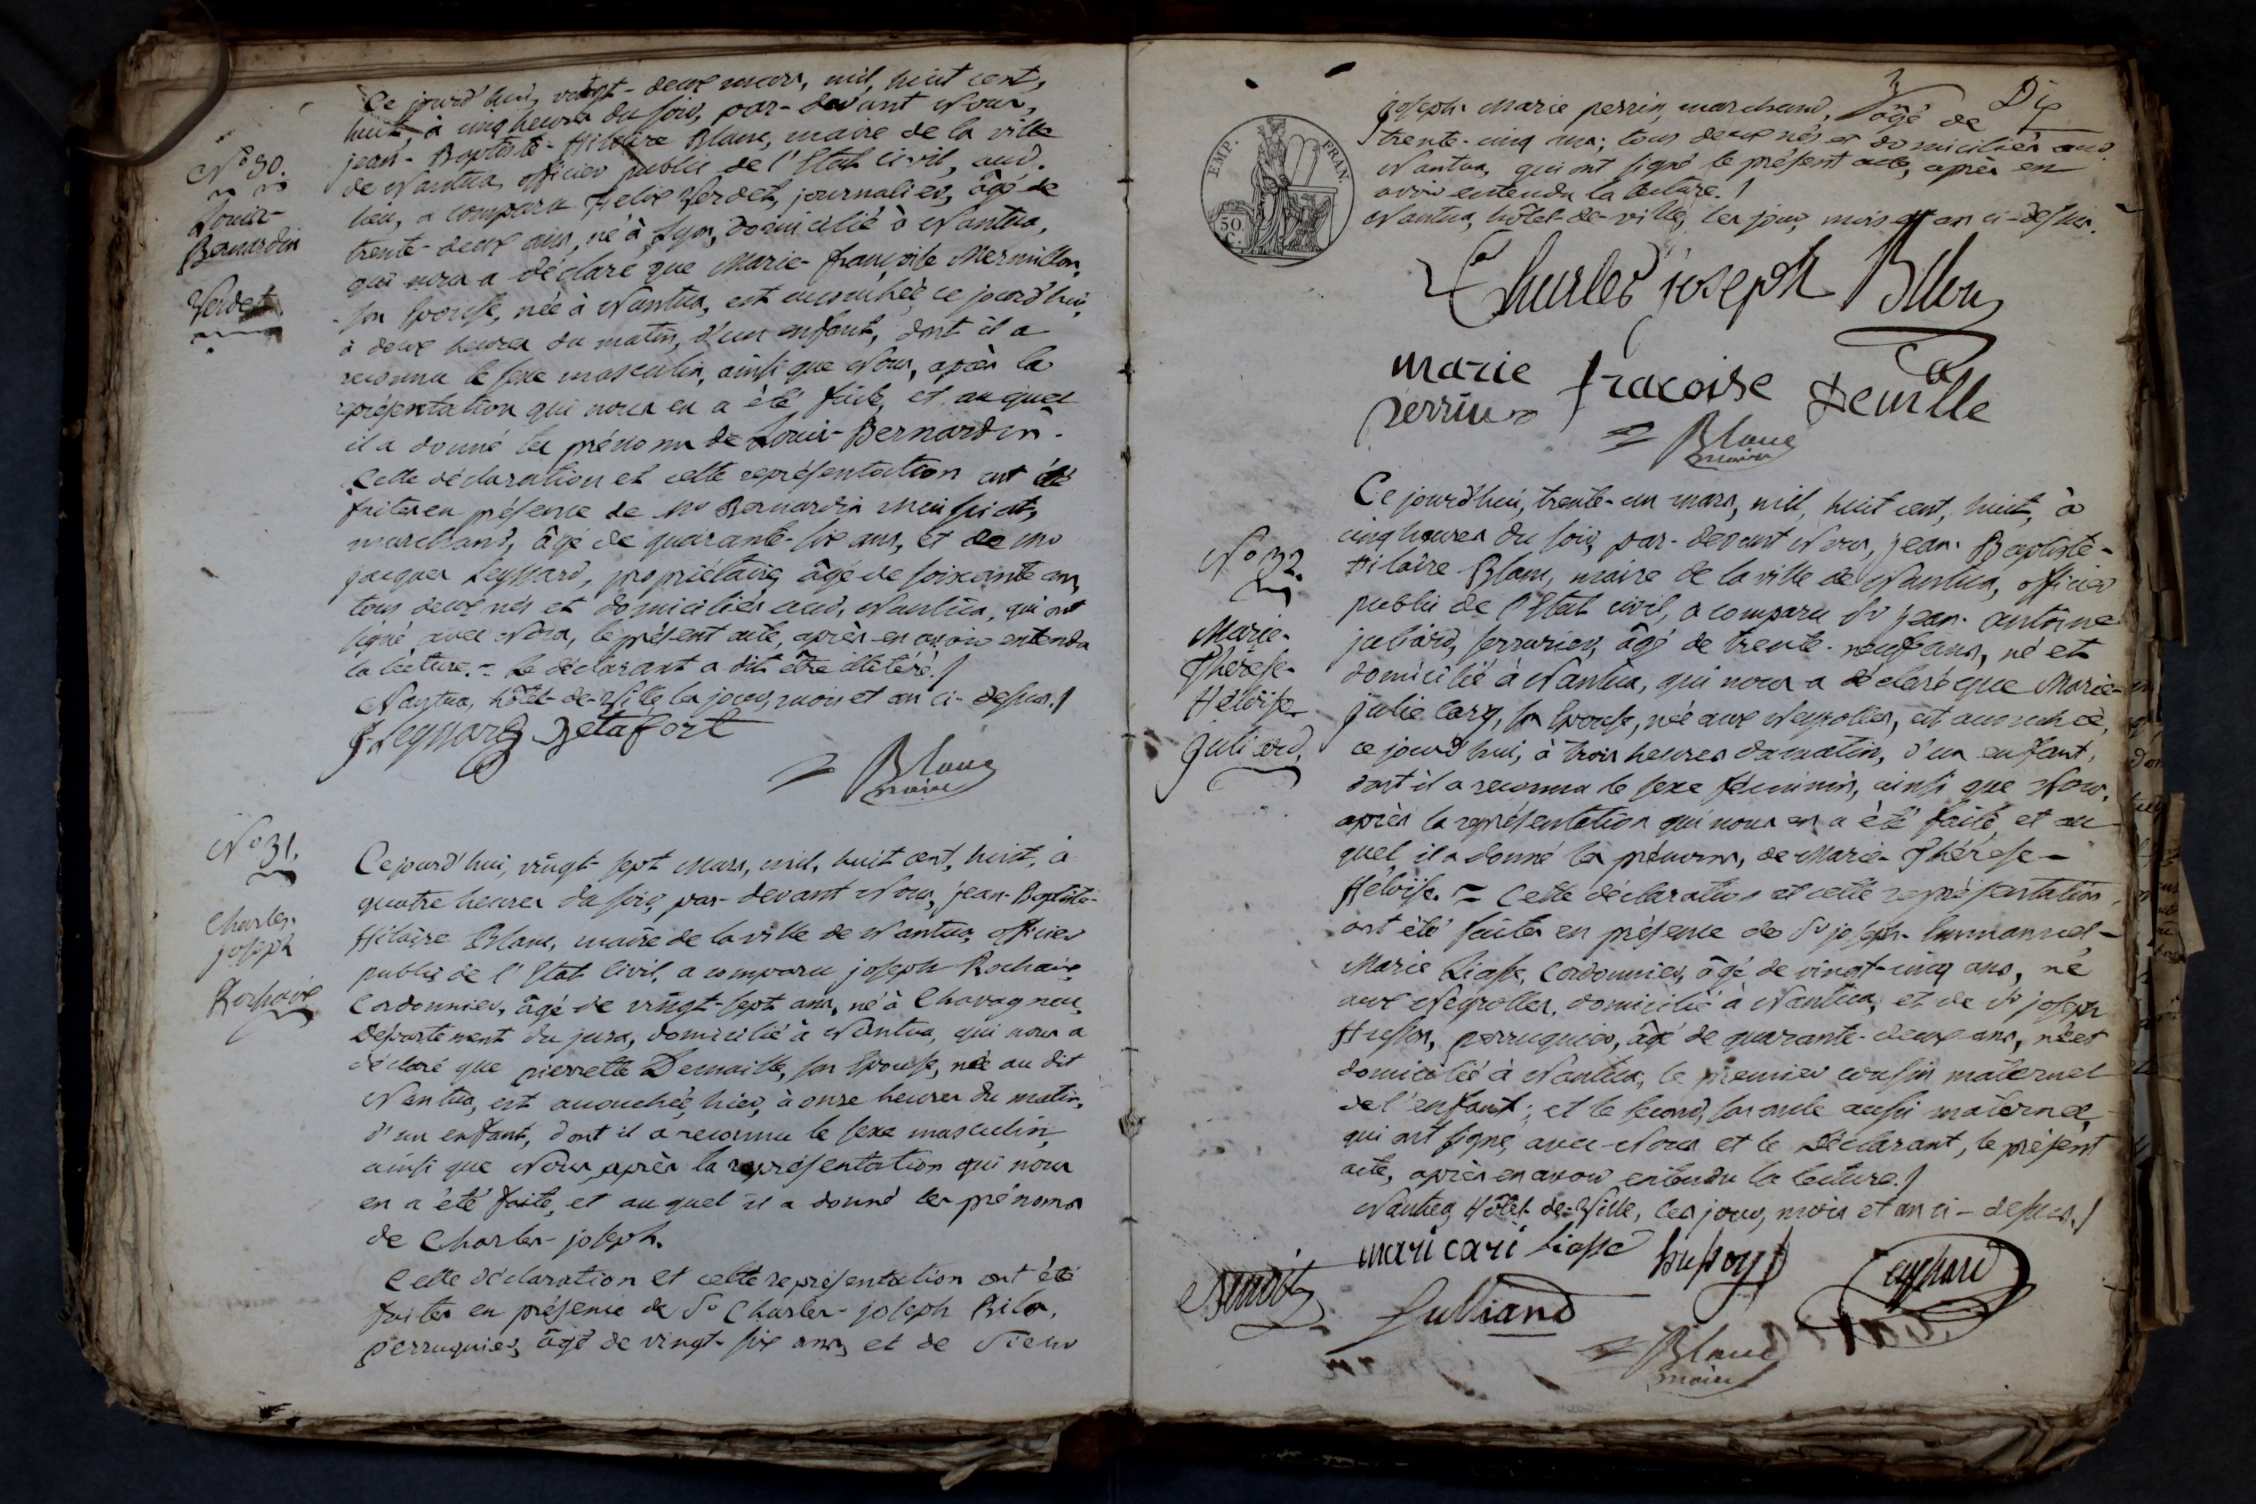 Ce jourd'hui, vingt-deux mars, mil, huit cent,
huit, à cinq heures du soir, par-devant Nous,
jean-Baptiste-Hilaire Blanc, maire de la ville
de Nantua, officier public de l'Etat Civil, aud.
lieu, a comparu Felix Verdet, journalier, âgé de
trente-deux ans, né à Lyon, domicilié à Nantua,
qui nous a déclaré que Marie-françoise Mermillon,
son Epouse, née à Nantua, est accouchée, ce jourd'hui,
à deux heures du matin, d'un enfant, dont il a
reconnu le sexe masculin, ainsi que Nous, après la
représentation qui nous en a été faite, et auquel
il a donné les prénoms de Louis-Bernardin.
Cette déclaration et cette représentation ont été
faites en présence de Mr Bernardin
marchand, âgé de quarante-six ans, et de mr
jacques Leyssard, propriétaire, âgé de soixante ans,
tous deux nés et domiciliés aud. Nantua, qui ont
signé avec Nous, le présent acte, après en avoir entendu
la lecture. = Le déclarant a dit être illétéré./
Nantua, hôtel-de-Ville les jour, mois et an ci-dessus./
J. Leyssard
Blanc
maire
No 30.
Louis-
Bernardin
Verdet
No 31.
Charles-
joseph
Rochaix
Ce jourd'hui, vingt-sept Mars, mil, huit cent, huit, à
quatre heures du soir, par-devant Nous, jean-Baptiste-
Hilaire Blanc, maire de la ville de Nantua, officier
public de l'Etat Civil, a comparu joseph Rochaix,
Cordonnier, âgé de vingt-sept ans, né à
Département du jura, domicilié à Nantua, qui nous a
déclaré que pierrette Demaille, son Epouse, née au dit
Nantua, est accouchée, hier, à onze heures du matin,
d'un enfant, dont il a reconnu le sexe masculin,
ainsi que Nous, après la représentation qui nous
en a été faite, et auquel il a donné les prénoms
de Charles-joseph.
Cette déclaration et cette représentation ont été
faites en présence de Sr Charles-joseph Billon,
perruquier, âgé de vingt-six ans, et de Sieur
EMP. FRAN.
50
C.
joseph-Marie perrin, marchand, âgé de
trente-cinq ans; tous deux nés et domiciliés aud.
Nantua, qui ont signé le présent acte, après en
avoir entendu la lecture./
Nantua, hôtel-de-ville, les jour, mois et an ci-dessus.
Charles joseph Billon
marie fracoise Demille
perrin
Blanc
maire
No 32.
Marie-
Thérèse-
Héloïse
juliard.
Ce jourd'hui, trente-un mars, mil, huit cent, huit, à
cinq heures du soir, par-devant Nous, jean-Baptiste-
Hilaire Blanc, maire de la ville de Nantua, officier
public de l'Etat civil, a comparu Sr jean-antoine
juliard, serrurier, âgé de trente-neuf ans, né et
domicilié à Nantua, qui nous a déclaré que Marie-
julie Carq, son Epouse, née aux Neyrolles, est accouchée,
ce jourd'hui, à trois heures du matin, d'un enfant,
dont il a reconnu le sexe féminin, ainsi que Nous,
après la représentation qui nous en a été faite, et au
quel il a donné les prénoms, de Marie-Thérèse-
Héloïse. = Cette déclaration et cette représentation,
ont été faites en présence de Sr joseph-Emmanuel-
Marie Liasse, Cordonnier, âgé de vingt-cinq ans, né
aux Neyrolles, domicilié à Nantua, et de Sr joseph
Husson, perruquier, âgé de quarante-deux ans, né et
domicilié à Nantua, le premier cousin maternel
de l'enfant; et le second, son oncle aussi maternel,
qui ont signé, avec-Nous et le Déclarant, le présent
acte, après en avoir entendu la lecture./
Nantua, Hôtel-de-Ville, les jour, mois et an ci-dessus./
mari cari Liasse
Benoit
Julliard
Leyssard
Blanc
maire